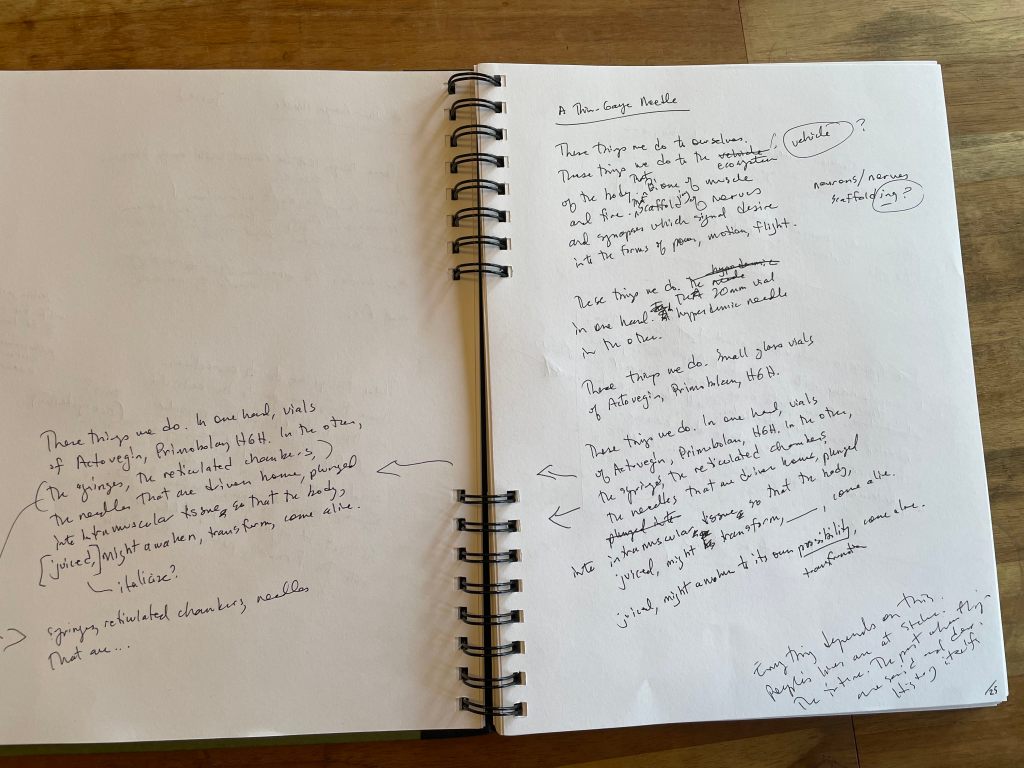 These things we do. In one hand, vials
of Actovegin, Primobolan, HGH. In the other,
(the syringes, the reticulated chambers,)
the needles that are driven home, plunged
into intramuscular tissue so that the body,
[juiced,] might awaken, transform, come alive.
italicize?
syringes, reticulated chambers, needles
that are...
A Thin-Gauge Needle
These things we do to ourselves.
These things we do to the vehicle vehicle ?
ecosystem
of the body, of muscle
neurons/nerves
and fire. scaffolding of nerves
scaffolding?
and synapses which signal desire
into the forms of power, motion, flight.
These things we do. The hypodermic
needle
in one hand. 30mm vial
hypodermic needle
in the other.
These things we do. Small glass vials
of Actovegin, Primobolan, HGH.
These things we do. In one hand, vials
of Actovegin, Primobolan, HGH. In the other,
the syringes, the reticulated chambers
the needles that are driven home, plunged
plunged into
into intramuscular tissue so that the body,
juiced, might transform, ___, come alive.
juiced, might awaken to its own possibility, come alive.
transformation
Everything depends on this.
People's lives are at stake.
The future. The past when
are said and done.
History itself.
/25